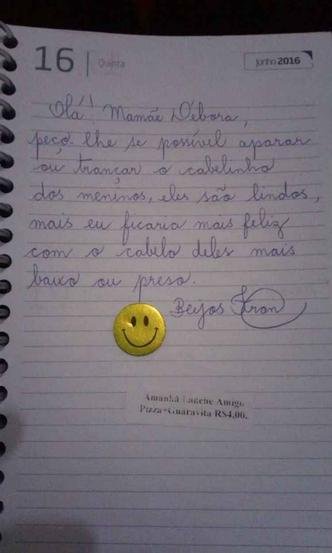 16 Quinta junho 2016
Olá! Mamãe Débora,
peço-lhe se possível aparar
ou trançar o cabelinho
dos meninos, eles são lindos,
mais eu ficaria mais feliz
com o cabelo deles mais
baixo ou preso.
Beijos Iran
Amanhã Lanche Amigo.
Pizza+Guaravita R$4,00.